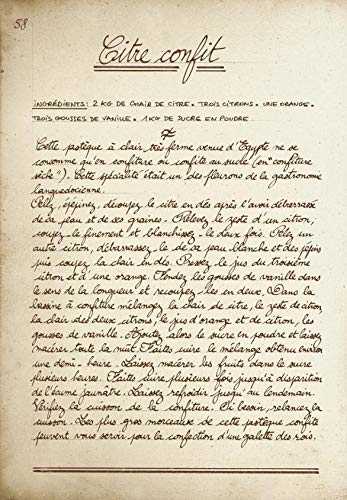 58
Citre confit
INGRÉDIENTS: 2 KG DE CHAIR DE CITRE. TROIS CITRONS. UNE ORANGE.
TROIS GOUSSES DE VANILLE. 1KG DE SUCRE EN POUDRE
Cette pastèque à chair, très ferme venue d'Egypte ne se
consomme qu'en confiture ou confite au sucre (en "confiture
sèche"). Cette spécialité était un des fleurons de la gastronomie
languedocienne.
Pelez, épépinez, découpez le citre en dés après l'avoir débarrassé
de sa peau et de ses graines. Prélevez le zeste d'un citron,
coupez-le finement et blanchissez-le deux fois. Pelez un
autre citron, débarrassez-le de sa peau blanche et des pépins
puis coupez la chair en dés. Pressez le jus du troisième
citron et d'une orange. Fendez les gousses de vanille dans
le sens de la longueur et recoupez-les en deux. Dans la
bassine à confiture mélangez la chair de citre, le zeste de citron
la chair des deux citrons, le jus d'orange et de citron, les
gousses de vanille. Ajoutez alors le sucre en poudre et laissez
macérer toute la nuit. Faites cuire le mélange obtenu environ
une demi-heure. Laissez macérer les fruits dans le sucre
plusieurs heures. Faites cuire plusieurs fois jusqu'à disparition
de l'écume jaunâtre. Laissez refroidir jusqu'au lendemain.
Vérifiez la cuisson de la confiture. Si besoin, relancez la
cuisson. Les plus gros morceaux de cette pastèque confite
peuvent vous servir pour la confection d'une galette des rois.